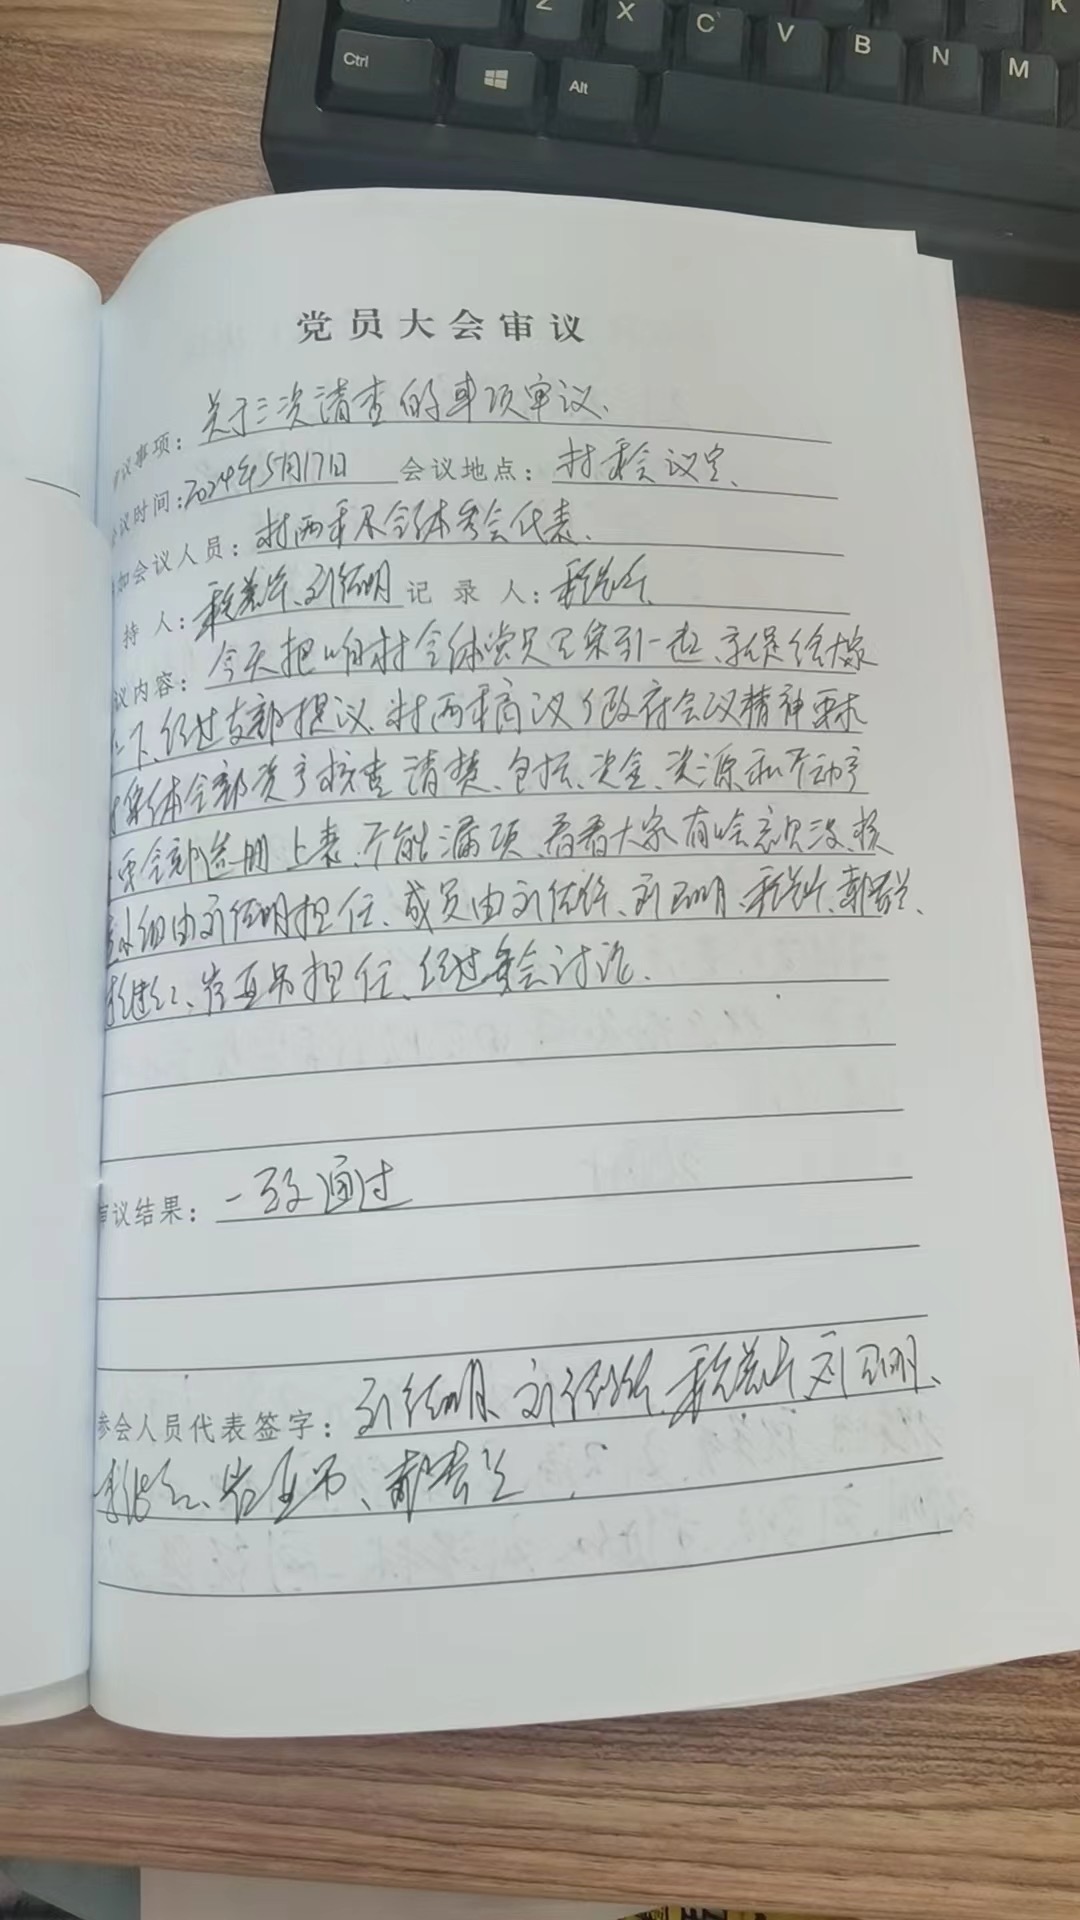 Z X C V B N M K
Ctrl Alt
党员大会审议
议事项：关于三次清查的事项审议、
议时间：2024年5月17日 会议地点：村委会议室、
加会议人员：村两委及全体参会代表、
持人：、刘红明 记录人：
议内容：今天把咱村全体党员召集到一起、就是给大家
下、经过支部提议、村两委商议、政府会议精神要求
集体全部资产核查清楚、包括、资金、资源和不动产
要全部造册上表、不能漏项、看看大家有啥意见没、核
小组由刘红明担任、成员由
担任、经过委会讨论、
审议结果：一致通过
参会人员代表签字：刘红明、